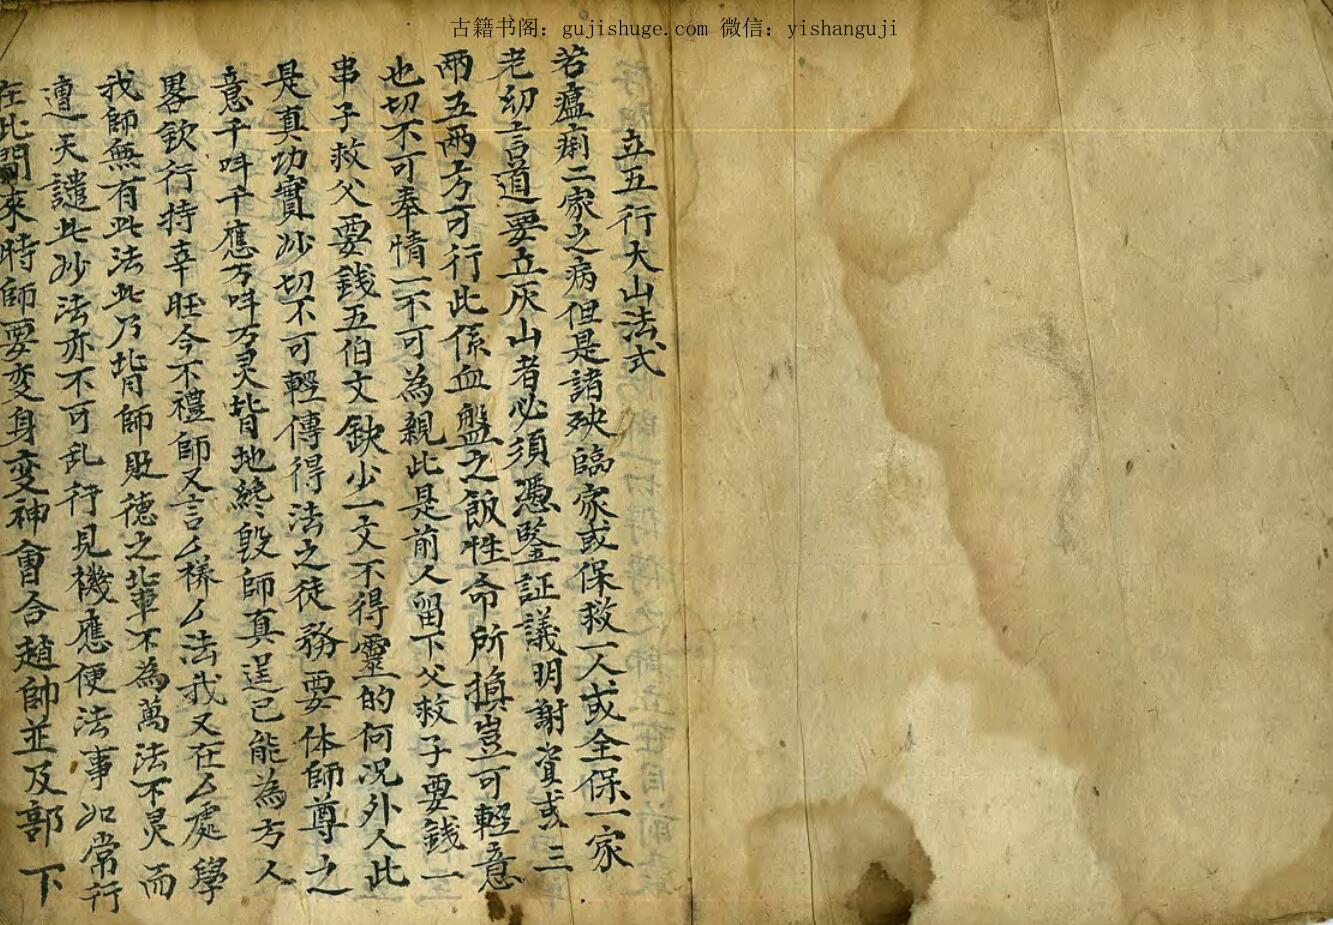 古籍书阁：gujishuge.com 微信：yishanguji
立五行大山法式
若瘟痢二家之病但是諸殃臨家或保救一人或全保一家
老幼言道要立灰山者必須憑鑒証議明謝資或三
兩五兩方可行此係血盤之飯性命所損豈可輕意
也切不可奉情一不可為親此是前人留下父救子要錢一
串子救父要錢五伯文缺少一文不得靈的何況外人此
是真功實妙切不可輕傳得法之徒務要体師尊之
意千呌千應万呌万灵背地終毁師真逞己能為方人
畧欽行持幸旺今不禮師又言厶样厶法我又在厶處學
我師無有此法此乃背師敗德之輩不為萬法不灵而
遭天譴此妙法亦不可乱行見機應便法事如常行
在此間來時師要变身变神會合趙帥並及部下